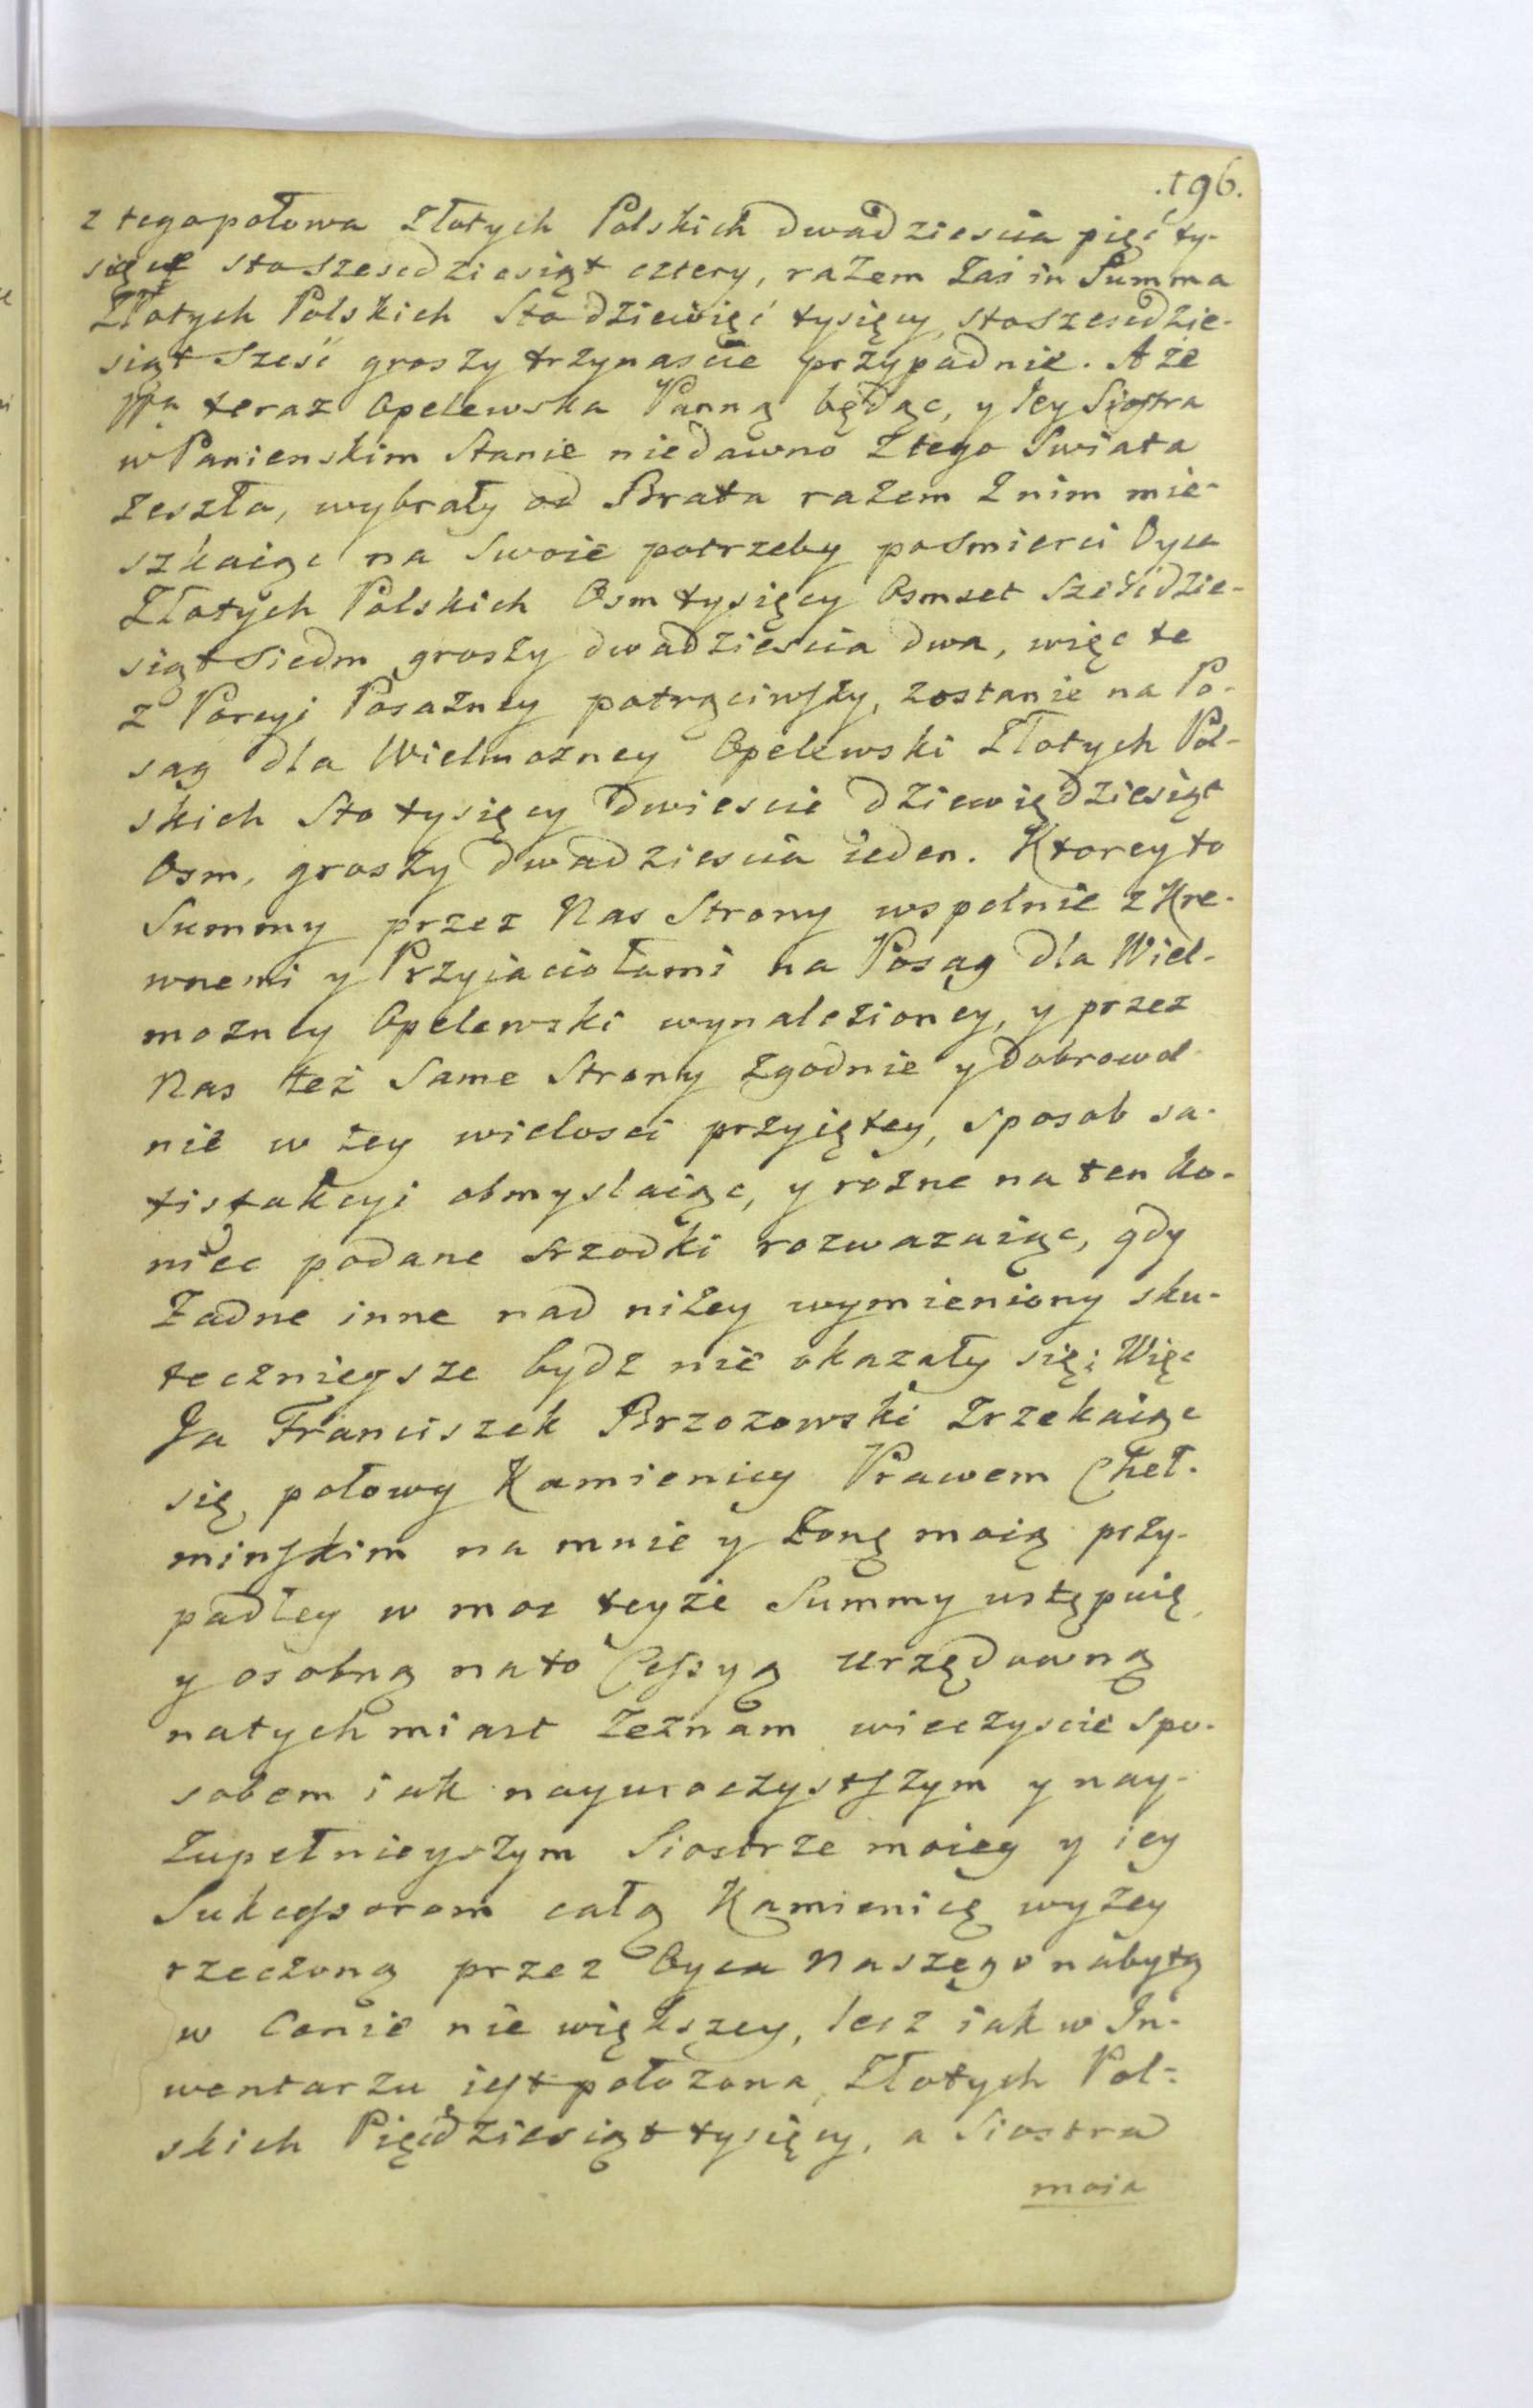 .196.
z tego połowa Złotych Polskich dwadziescia pięć ty-
sięcy sto szescdziesiąt cztery, razem zaś in Summa
Złotych Polskich Sto dziewięć tysięcy, sto szescdzie-
siąt Szesć groszy trzynascie przypadnie. A że
JPa teraz Opelewska Panną będąc, y Jey Siostra
w Panienskim Stanie niedawno z tego Swiata
zeszła, wybrały od Brata razem z nim mie-
szkaiąc na Swoie potrzeby po Smierci Oyca
Złotych Polskich Osm tysięcy Osmset Sześćdzie-
siąt Siedm groszy dwadziescia dwa, więc te
z Porcyi Posażney potrąciwszy, zostanie na Po-
sag dla Wielmożney Opelewski Złotych Pol-
skich Sto tysięcy dwiescie dziewięćdziesiąt
Osm, groszy dwadziescia ieden. Ktorey to
Summy przez Nas Strony wspolnie z Kre-
wnemi y Przyiaciołami na Posag dla Wiel-
możney Opelewski wynalezioney, y przez
Nas też Same Strony zgodnie y dobrowol-
nie w tey wielosci przyiętey, sposob sa-
tisfakcyi obmyslaiąc, y rożne na ten ko-
niec podane srzodki rozwazaiąc, gdy
żadne inne nad niżey wymieniony sku-
tecznieysze bydz nie okazały się; Więc
Ja Franciszek Brzozowski zrzekaiąc
się połowy Kamienicy Prawem Cheł-
minskim na mnie y żonę moią przy-
padłey w moc teyże Summy ustępuię,
y osobną na to Cessyą urzędowną
natychmiast zeznam wieczyscie spo-
sobem iak nayuroczystszym y nay-
zupełnieyszym Siostrze moiey y iey
Sukcessorom całą Kamienicę wyżey
rzeczoną przez Oyca Naszego nabytą
w Cenie nie większey, lecz iak w In-
wentarzu iest położona, Złotych Pol-
skich Pięćdziesiąt tysięcy, a Siostra
moia